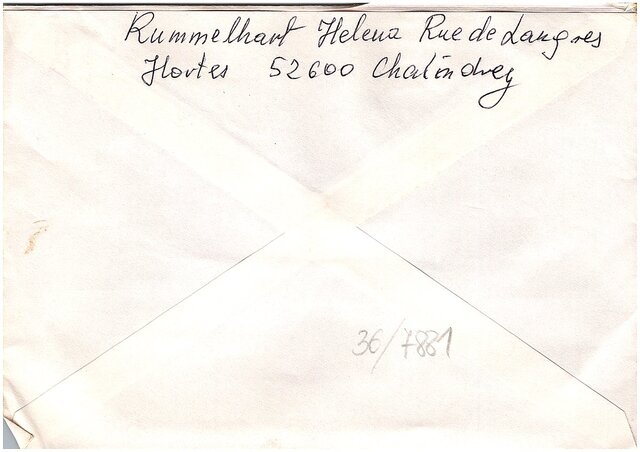 Rummelhart Helena Rue de Langres
Hortes 52600 Chalindrey
36/7881